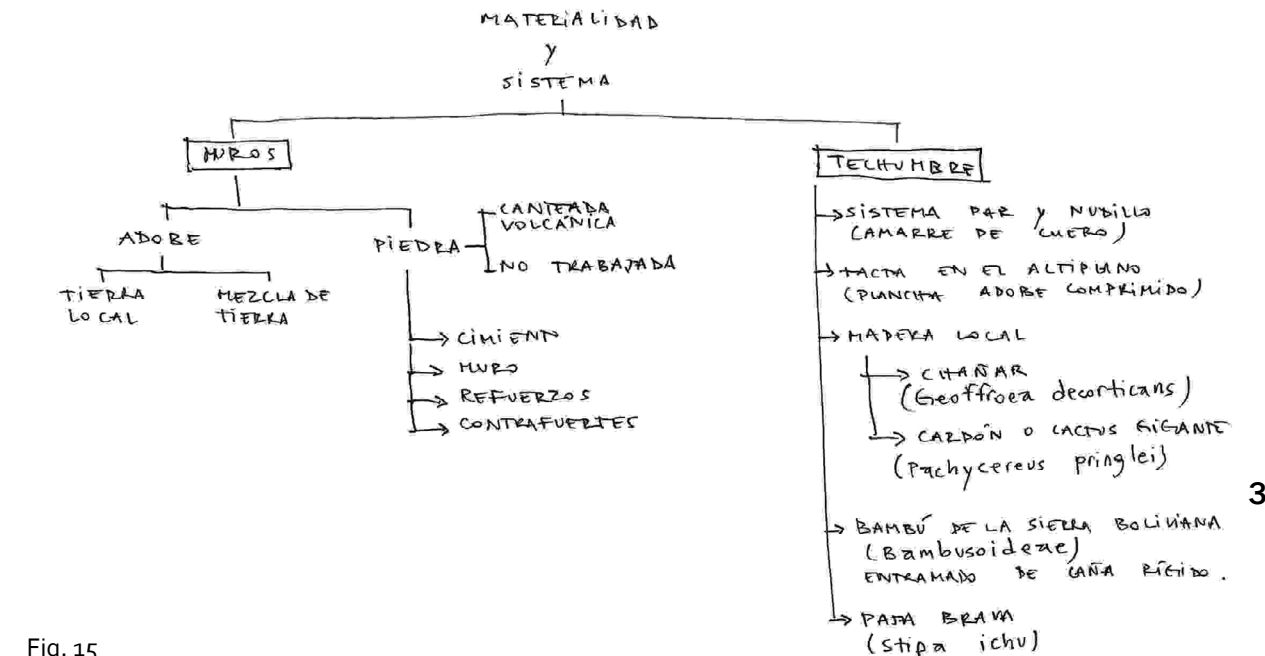 MATERIALIDAD
y
SISTEMA
MUROS
ADOBE
TIERRA
LOCAL
MEZCLA DE
TIERRA
PIEDRA
CANTEADA
VOLCÁNICA
NO TRABAJADA
CIMIENTO
MURO
REFUERZOS
CONTRAFUERTES
TECHUMBRE
SISTEMA PAR y NUDILLO
(AMARRE DE CUERO)
TACTA EN EL ALTIPLANO
(PLANCHA ADOBE COMPRIMIDO)
MADERA LOCAL
CHAÑAR
(Geoffroea decorticans)
CARDÓN O CACTUS GIGANTE
(Pachycereus pringlei)
BAMBÚ DE LA SIERRA BOLIVIANA
(Bambusoideae)
ENTRAMADO DE CAÑA RÍGIDO.
PAJA BRAVA
(Stipa ichu)
3
Fig. 15